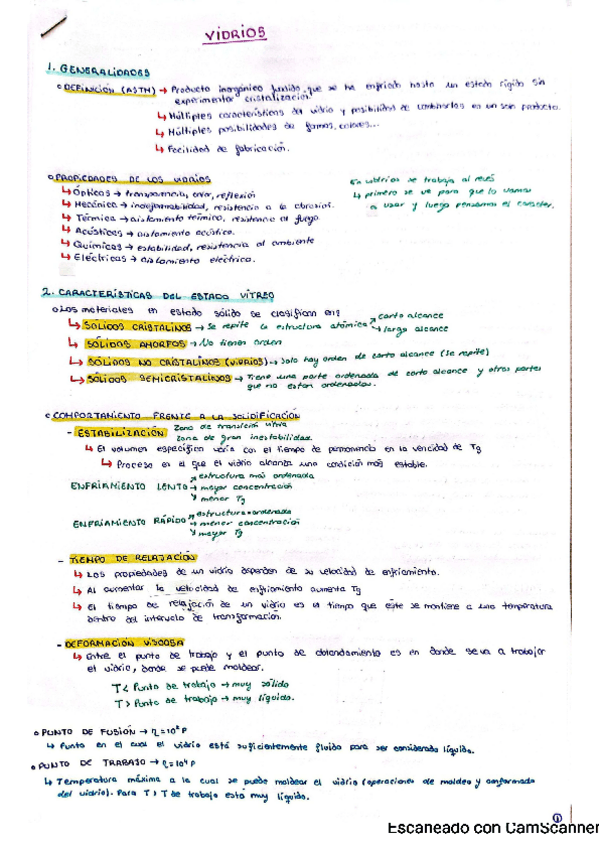 VIDRIOS
1. GENERALIDADES
DEFINICIÓN (ASTM) → Producto inorgánico fundido que se ha enfriado hasta un estado rígido sin
experimentar cristalización.
↳ Múltiples características del vidrio y posibilidad de combinarlas en un solo producto.
↳ Múltiples posibilidades de formas, colores...
↳ Facilidad de fabricación.
PROPIEDADES DE LOS VIDRIOS
↳ Ópticas → transparencia, color, reflexión
↳ Mecánica → indeformabilidad, resistencia a la abrasión.
↳ Térmica → aislamiento térmico, resistencia al fuego
↳ Acústicas → aislamiento acústico.
↳ Químicas → estabilidad, resistencia al ambiente
↳ Eléctricas → aislamiento eléctrico.
En vidrios se trabaja al revés
↳ primero se ve para que lo vamos
a usar y luego pensamos el carácter.
2. CARACTERÍSTICAS DEL ESTADO VÍTREO
Los materiales en estado sólido se clasifican en:
↳ SÓLIDOS CRISTALINOS → Se repite la estructura atómica
corto alcance
largo alcance
↳ SÓLIDOS AMORFOS → No tienen orden
↳ SÓLIDOS NO CRISTALINOS (VIDRIOS) → Solo hay orden de corto alcance (se repite)
↳ SÓLIDOS SEMICRISTALINOS → Tiene una parte ordenada de corto alcance y otras partes
que no están ordenadas.
COMPORTAMIENTO FRENTE A LA SOLIDIFICACIÓN
- ESTABILIZACIÓN
Zona de transición vítrea
Zona de gran inestabilidad.
↳ El volumen específico varía con el tiempo de permanencia en la cercanía de Tg
↳ Proceso en el que el vidrio alcanza una condición más estable.
ENFRIAMIENTO LENTO
estructura más ordenada
→ mayor concentración
menor Tg
ENFRIAMIENTO RÁPIDO
estructura - ordenada
→ menor concentración
mayor Tg
- TIEMPO DE RELAJACIÓN
↳ Las propiedades de un vidrio dependen de su velocidad de enfriamiento.
↳ Al aumentar la velocidad de enfriamiento aumenta Tg
↳ El tiempo de relajación de un vidrio es el tiempo que este se mantiene a una temperatura
dentro del intervalo de transformación.
- DEFORMACIÓN VISCOSA
↳ Entre el punto de trabajo y el punto de ablandamiento es en donde se va a trabajar
el vidrio, donde se puede moldear.
T < Punto de trabajo → muy sólido
T > Punto de trabajo → muy líquido.
PUNTO DE FUSIÓN → η = 10² P
↳ Punto en el cual el vidrio está suficientemente fluido para ser considerado líquido.
PUNTO DE TRABAJO → η = 10⁴ P
↳ Temperatura máxima a la cual se puede moldear el vidrio (operaciones de moldeo y conformado
del vidrio). Para T > T de trabajo está muy líquido.
1
Escaneado con CamScanner